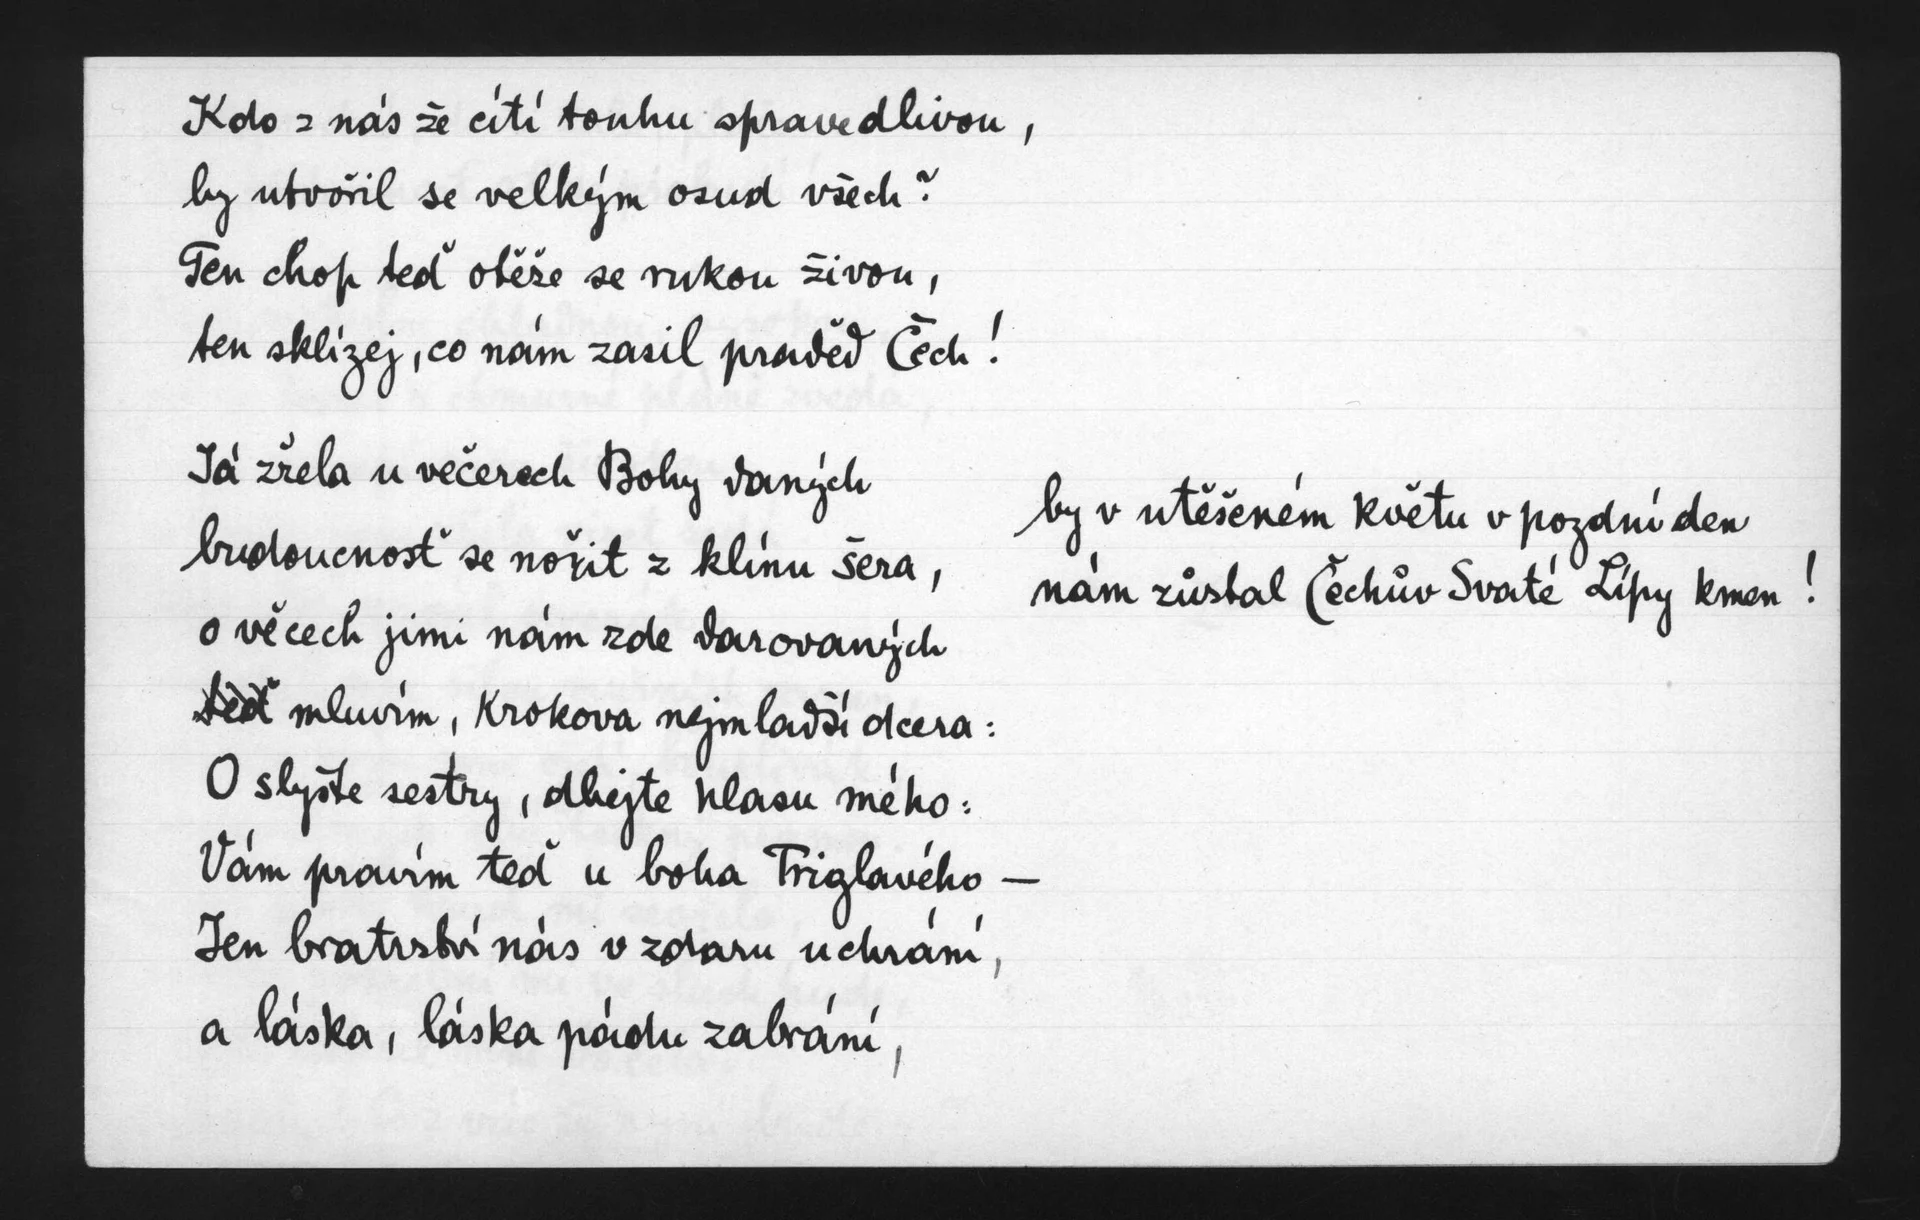 Kdo z nás že cítí touhu spravedlivou,
by utvořil se velkým osud všech?
Ten chop teď otěže se rukou živou,
ten sklízej, co nám zasil praděd Čech!
Já zřela u večerech Bohy daných
budoucnosť se nořit z klínu šera,
o věcech jimi nám zde darovaných
teď mluvím, Krokova nejmladší dcera:
O slyšte sestry, dbejte hlasu mého:
Vám pravím teď u boha Triglavého —
Jen bratrství nás v zdaru uchrání,
a láska, láska pádu zabrání,
by v utěšeném květu v pozdní den
nám zůstal Čechův Svaté Lípy kmen!